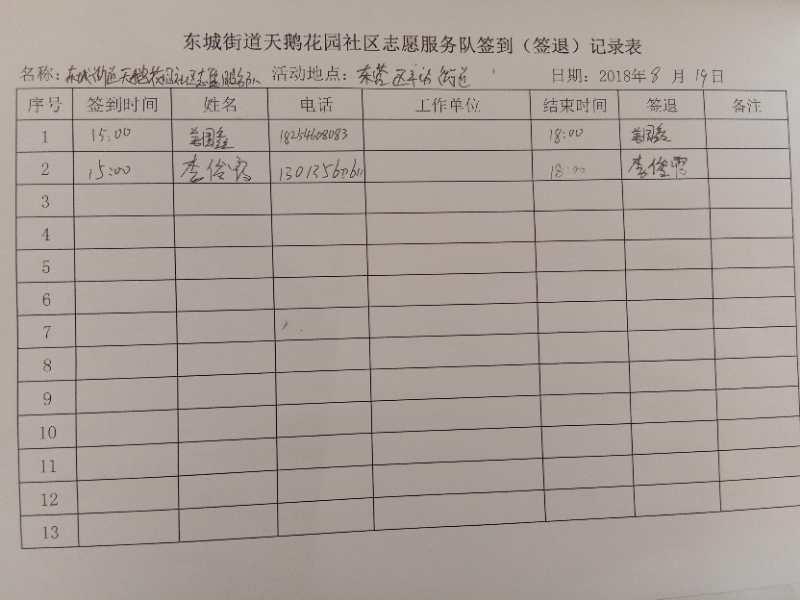 东城街道天鹅花园社区志愿服务队签到（签退）记录表
名称：东城街道天鹅花园社区志愿服务队 活动地点：东营区 街道 日期：2018年8月19日
序号 签到时间 姓名 电话 工作单位 结束时间 签退 备注
1 15:00 国鑫 18254608083 18:00 国鑫
2 15:00 李俊霞 18:00 李俊霞
3
4
5
6
7
8
9
10
11
12
13